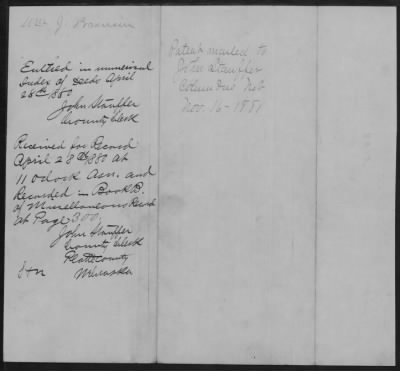 Wm J.
Entered in numerical
Index of deeds April
28th 1880
John Stauffer
County Clerk
Received for Record
April 28th 1880 at
11 oclock A.m. and
Recorded in Book B.
of Miscellaneous Record
at Page 300.
John Stauffer
County Clerk
Platte County
Nebraska
Patent mailed to
John Stauffer
Columbus Neb
Nov. 16 - 1881